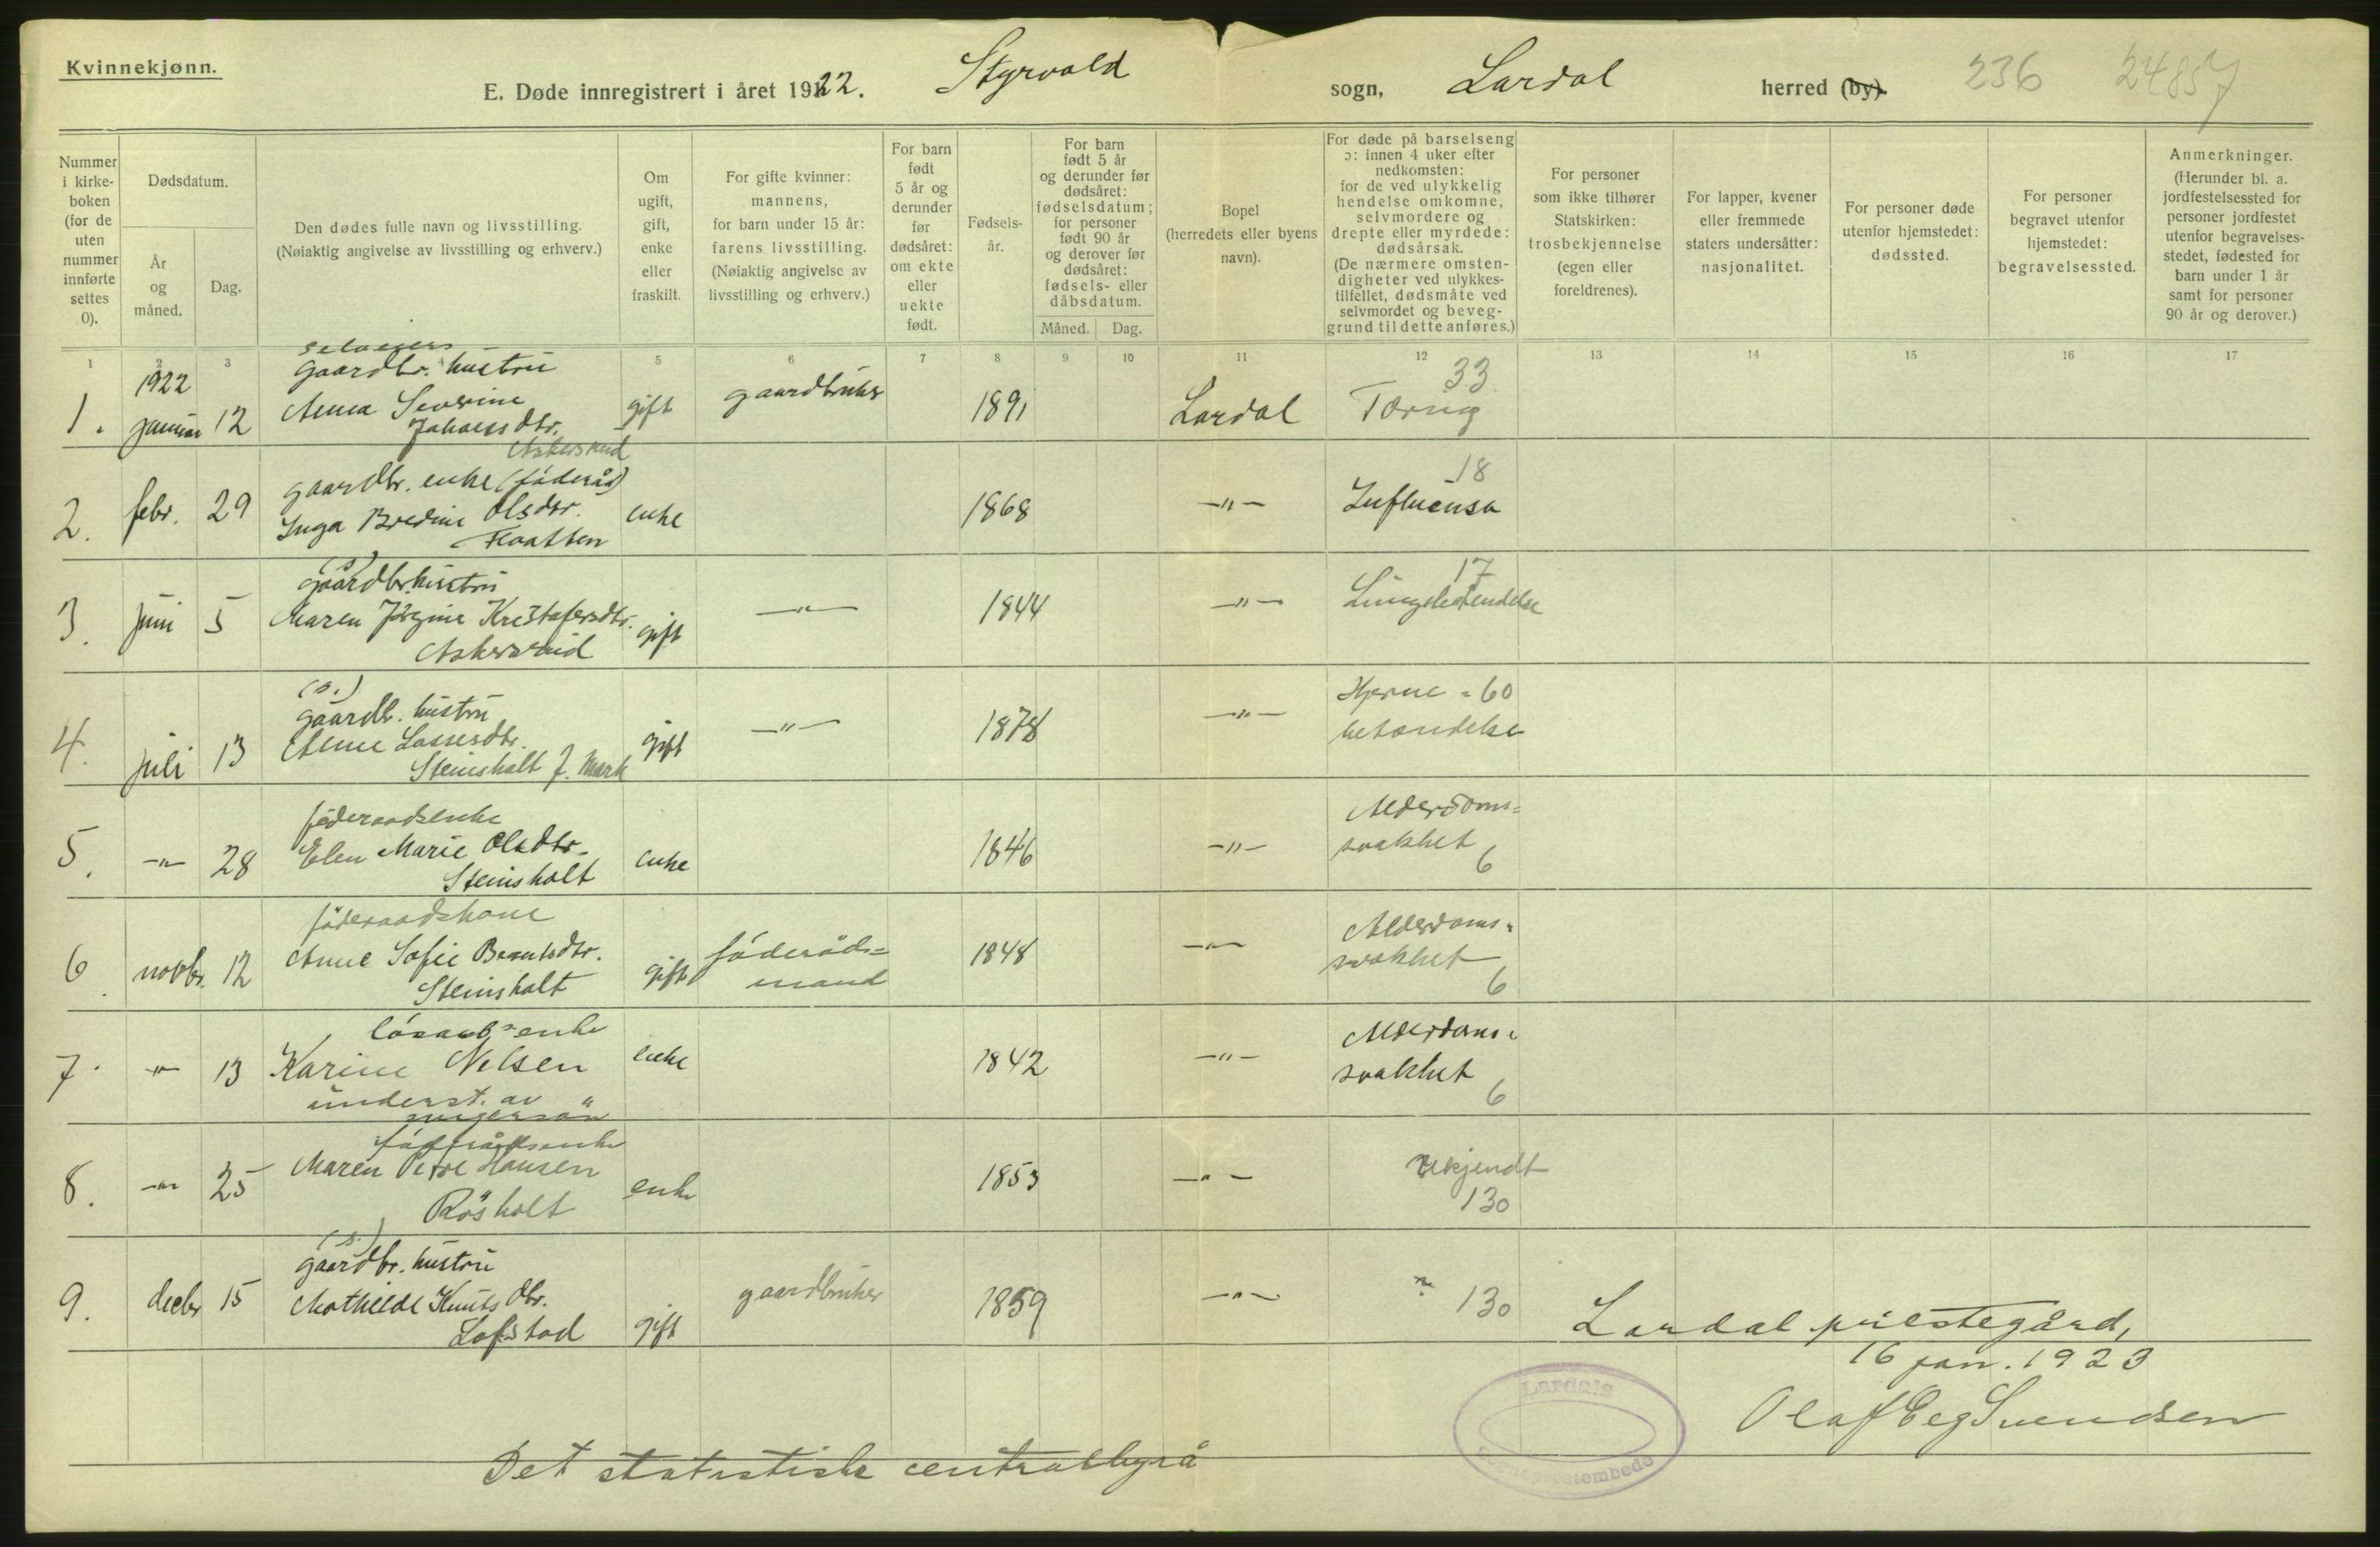 Kvinnekjønn.
E. Døde innregistrert i året 1922. Styrvold sogn, Lardal herred (by). 236 24857
Nummer i kirke-boken (for de uten nummer innførte settes 0).
Dødsdatum.
År og måned.
Dag.
Den dødes fulle navn og livsstilling.
(Nøiaktig angivelse av livsstilling og erhverv.)
Om ugift, gift, enke eller fraskilt.
For gifte kvinner: mannens, for barn under 15 år: farens livsstilling. (Nøiaktig angivelse av livsstilling og erhverv.)
For barn født 5 år og derunder før dødsåret: om ekte eller uekte født.
Fødsels-år.
For barn født 5 år og derunder før dødsåret: fødselsdatum; for personer født 90 år og derover før dødsåret: fødsels- eller dåbsdatum.
Måned. Dag.
Bopel (herredets eller byens navn).
For døde på barselseng ɔ: innen 4 uker efter nedkomsten: for de ved ulykkelig hendelse omkomne, selvmordere og drepte eller myrdede: dødsårsak. (De nærmere omsten-digheter ved ulykkes-tilfellet, dødsmåte ved selvmordet og beveg-grund til dette anføres.)
For personer som ikke tilhører Statskirken: trosbekjennelse (egen eller foreldrenes).
For lapper, kvener eller fremmede staters undersåtter: nasjonalitet.
For personer døde utenfor hjemstedet: dødssted.
For personer begravet utenfor hjemstedet: begravelsessted.
Anmerkninger. (Herunder bl. a. jordfestelsessted for personer jordfestet utenfor begravelses-stedet, fødested for barn under 1 år samt for personer 90 år og derover.)
1 2 3 5 6 7 8 9 10 11 12 13 14 15 16 17
selveiers
gaardbr. hustru
1922
1. januar 12 Anna Severine gift gaardbruker 1891 Lardal Tæring 33.
Johansdtr.
Askersrud
gaardbr. enke (föderåd)
2. febr. 29 Inga Bredine Olsdtr. enke 1868 -"- Influensa 18
Flaatten
(s)
gaardbr.hustru
3. juni 5 Maren Jörgine Kristofersdtr. gift -"- 1844 -"- Lungebetendelse 17
Askersrud
(s.)
gaardb. hustru
4. juli 13 Anne Lassesdtr. gift -"- 1878 -"- Hjerne = 60
Steinsholt f. Mark betændelse
föderaadsenke
5. -"- 28 Elen Marie Olsdtr. enke 1846 -"- Alderdoms=
Steinsholt svakhet 6
föderaadskone
6. novbr. 12 Anne Sofie Berntsdtr. gift föderåds=mand 1848 -"- Alderdoms=
Steinsholt svakhet 6
lösarb=enke
7. -"- 13 Karine Nilsen enke 1842 -"- Alderdoms=
underst. av svigersön svakhet 6
föderådsenke
8. -"- 25 Maren Petre Hansen enke 1853 -"- Ukjendt
Rösholt 130
(s.)
gaardbr. hustru
9. decbr 15 Mathilde Knutsdtr. gift gaardbruker 1859 -"- ? 130
Lofstad
Lardal prestegård,
16 jan. 1923
Olaf Eeg Svendsen
Lardals
Sogneprestembede
Det statistiske centralbyrå